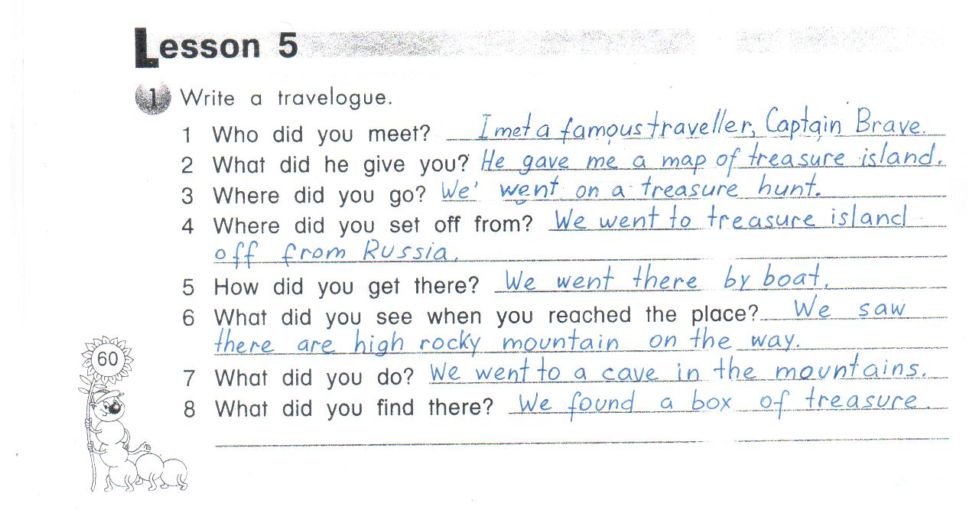 Lesson 5
1 Write a travelogue.
1 Who did you meet? I met a famous traveller, Captain Brave.
2 What did he give you? He gave me a map of treasure island.
3 Where did you go? We' went on a treasure hunt.
4 Where did you set off from? We went to treasure island
off from Russia.
5 How did you get there? We went there by boat.
6 What did you see when you reached the place? We saw
there are high rocky mountain on the way.
7 What did you do? We went to a cave in the mountains.
8 What did you find there? We found a box of treasure.
60